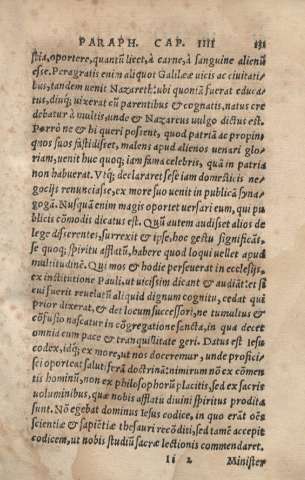 PARAPH. CAP. IIII 131
stia, oportere, quantũ licet, à carne, à sanguine alienũ
esse. Peragratis enim aliquot Galilææ uicis ac ciuitati
bus, tandem uenit Nazareth: ubi quoniã fuerat educa
tus, diuq; uixerat cũ parentibus & cognatis, natus cre
debatur à multis, unde & Nazareus uulgo dictus est.
Porrò ne & hi queri possent, quod patriã ac propin
quos suos fastidisset, malens apud alienos uenari glo
riam, uenit huc quoq; iam fama celebris, quã in patria
non habuerat. Vtq; declararet sese iam domesticis ne
gocijs renunciasse, ex more suo uenit in publicã syna
gogã. Nusquã enim magis oportet uersari eum, qui pu
blicis cõmodis dicatus est. Quũ autem audisset alios de
lege disserentes, surrexit & ipse, hoc gestu significãs,
se quoq; spiritu afflatũ, habere quod loqui uellet apud
multitudinẽ. Qui mos & hodie perseuerat in ecclesijs,
ex institutione Pauli, ut uicissim dicant & audiãt: et si
cui fuerit reuelatũ aliquid dignum cognitu, cedat qui
prior dixerat, & det locum successori, ne tumultus &
cõfusio nascatur in cõgregatione sancta, in qua decet
omnia cum pace & tranquilitate geri. Datus est Iesu
codex, idq; ex more, ut nos doceremur, unde profici
sci oporteat salutiferã doctrinã: nimirum nõ ex cõmen
tis hominũ, non ex philosophorũ placitis, sed ex sacris
uoluminibus, quæ nobis afflatu diuini spiritus prodita
sunt. Nõ egebat dominus Iesus codice, in quo erãt oẽs
scientiæ & sapiẽtiæ thesauri recõditi, sed tamẽ accepit
codicem, ut nobis studiũ sacræ lectionis commendaret.
Ii 2 Minister